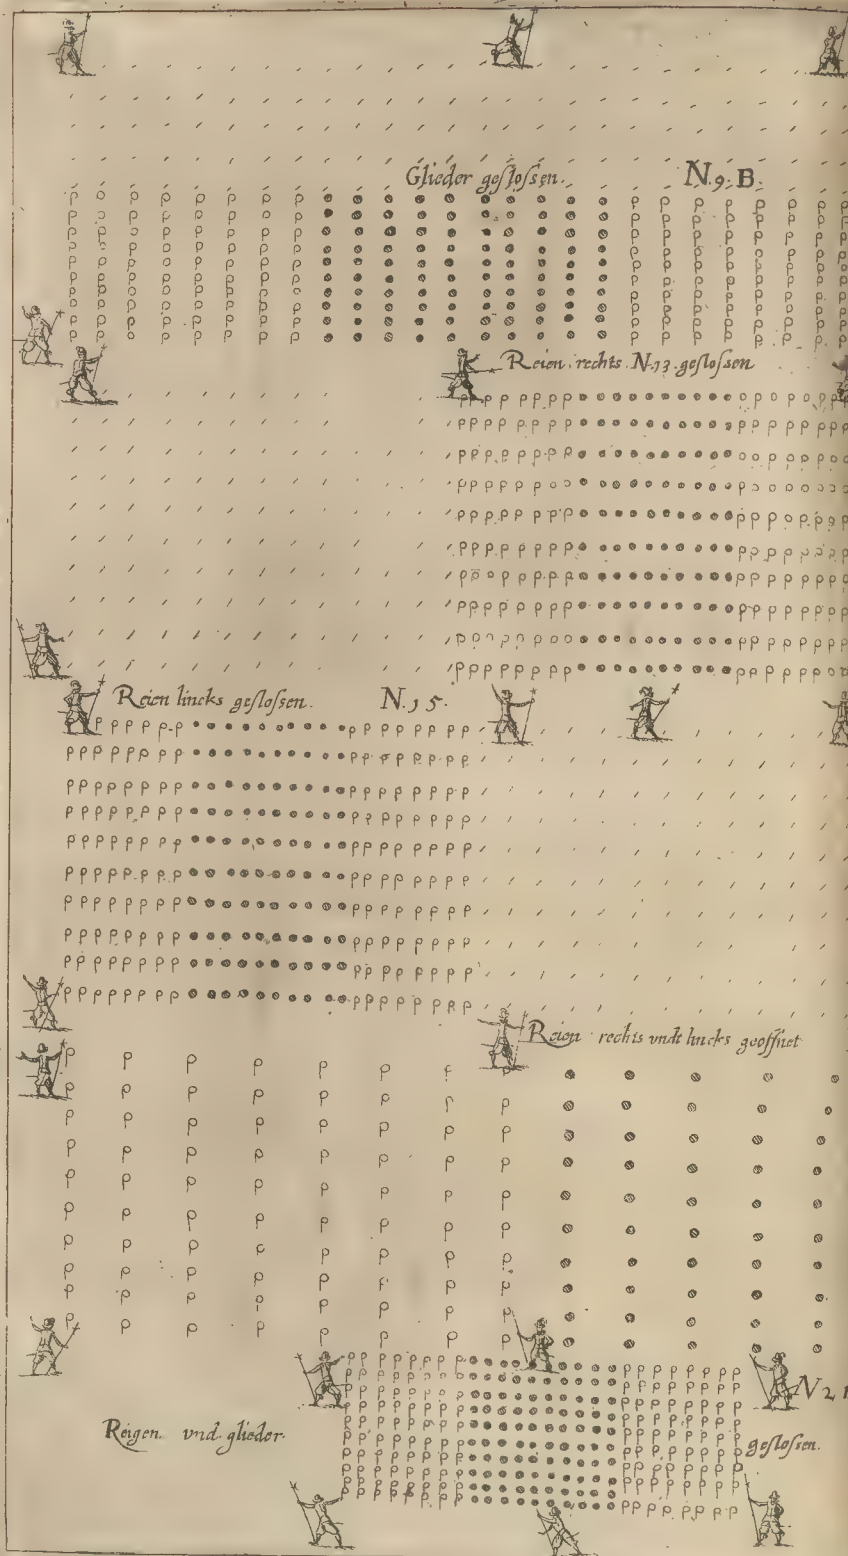 Glieder geſloſsen. N.9. B.
Reien rechts N.13 geſloſsen
Reien lincks geſloſsen. N.15.
Reien rechts vndt lincks geoffnet
N 21
Reigen vnd glieder. geſloſsen.